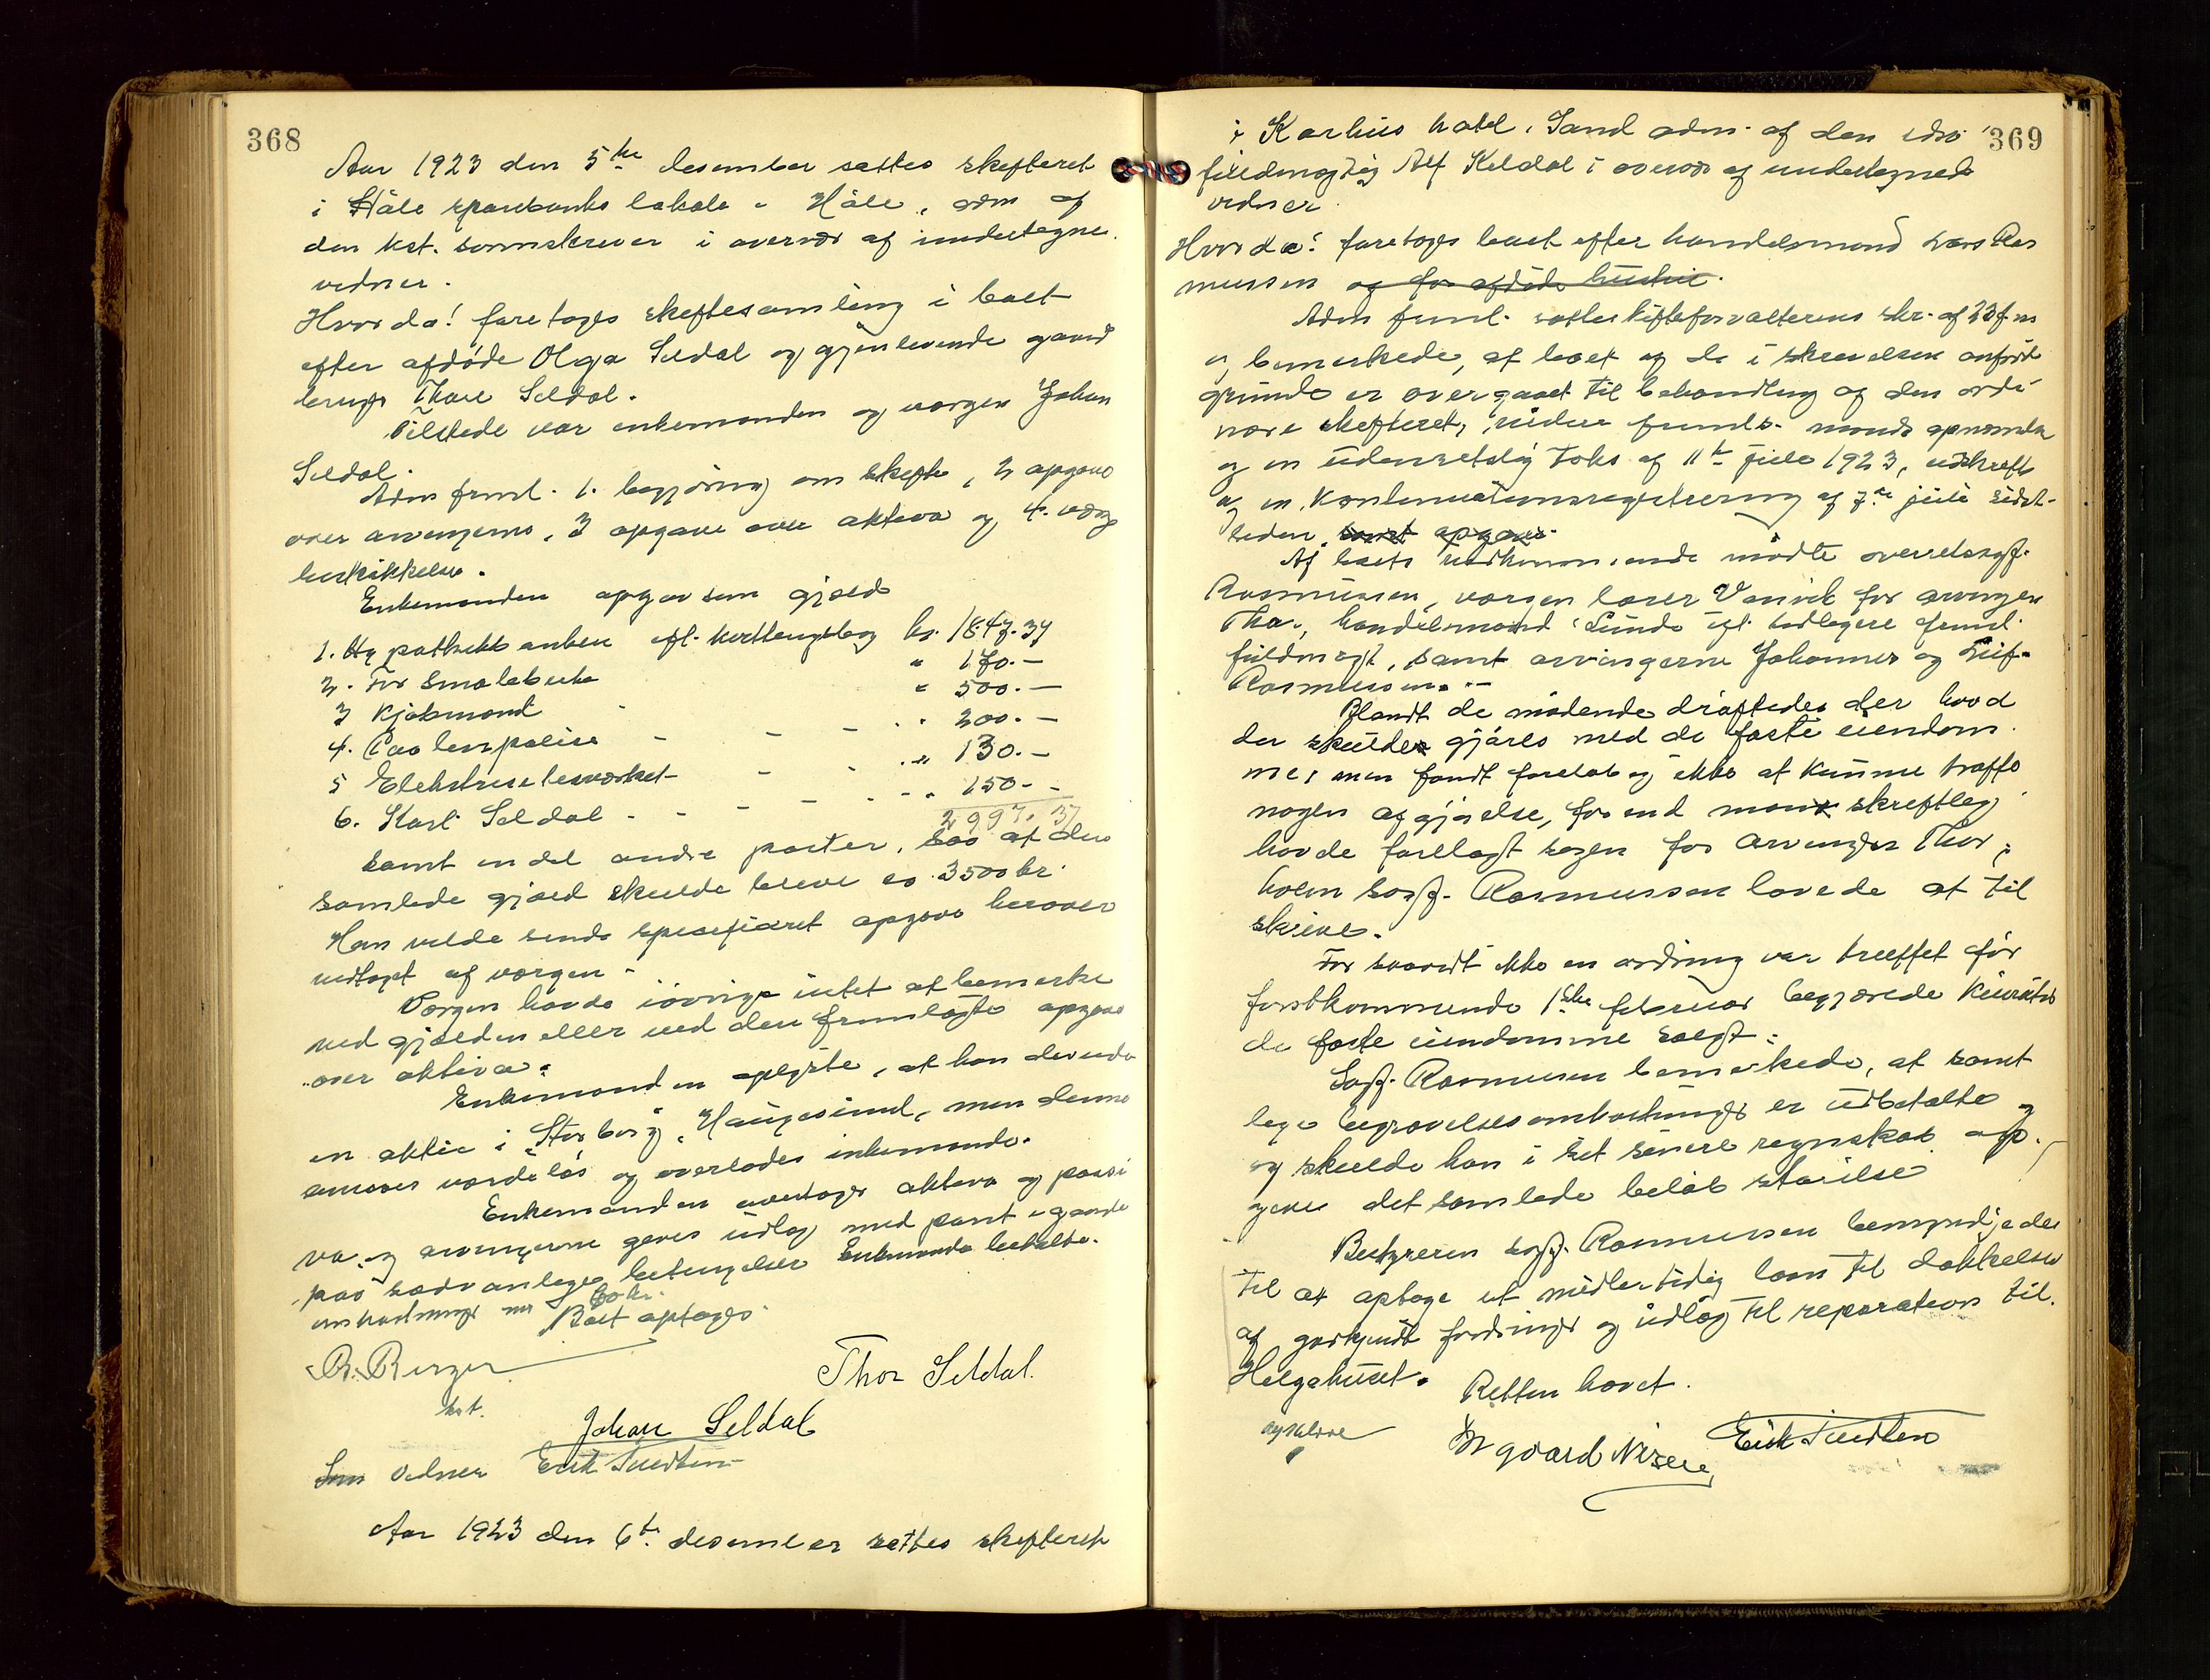 368
Aar 1923 den 5te desember sattes skifteret
i Håle sparebanks lokale - Håle, adm af
den kst. sorenskriver i overvær af undertegne.
vidner.
Hvorda! foretoges skiftesamling i boet
efter afdøde Olga Seldal og gjenlevende gaard
bruger Thore Seldal.
Tilstede var enkemanden og vergen Johan
Seldal.
Adm freml. 1. begjæring om skifte, 2 opgave
over arvingerne, 3 opgave over aktiva og 4. værge
beskikkelse.
Enkemanden opgav som gjæld
1. Hypothekbanken efl. kortlengslag kr. 1847.37
2. For Smalebruke " 170.-
3 Kjøbmænd - " 500.-
4. Paalenpolise - - - - " 200.-
5 Elektrisitetsverket - - " 130.-
6. Karl Seldal - - - - - " 150.-
2997.37
samt en del andre poster, saa at den
samlede gjæld skulde bleve ca 3500 kr.
Han vilde sende spesifiseret opgave herover
vedtaget af vergen -
Vergen havde iøvrigt intet at bemerke
ved gjælden eller ved den fremlagte opgave
over aktiva.
Enkemanden oplyste, at han desuden
en aktie i "Storborg", Haugesund, men denne
ansees verdiløs og overlodes enkemanden.
Enkemanden overtoges aktiva og passi
va, og arvingerne gives udlæg med pant i gaarde
paa sedvanlige betingelser Enkemanden betalte.
omkostninger med 60 kr.
Boet optoges.
B. Berger
kst.
Thor Seldal.
Johan Seldal
Som Vidner Erik Tveiten
Aar 1923 den 6te desember sattes skifteret
369
i Karhus hotel, Sand adm. af den edsv.
fuldmægtig Alf Keldal i overvær af undertegnede
vidner
Hvorda! foretoges boet efter handelsmand Lars Ras
mussen og for afdøde hustru.
Adm freml. rettes skifteforvalterens skr. af 23 f.m
og bemerkede, at boet af de i skrivelsen anførte
grunde er overgaaet til behandling af den ordi
nære skifteret, videre freml. mands opnævnelse
og en udenretslig takst af 11te juli 1923, udskrift
af en Kontinuationsregistrering af 7de juli sidst-
leden. samt opgave.
Af boets vedkommende mødte overretssagf.
Rasmussen, vergen lærer Vanvik for arvingen
Thor, handelsmand Lunde efl. tidligere freml.
fuldmagt, samt arvingerne Johannes og Leif
Rasmussen. -
Blandt de mødende drøftedes der hvad
der skulde gjøres med de faste eiendom
me, men fandt foreløbig ikke at kunne træffe
nogen afgjørelse, førend man skriftlig
havde forelagt sagen for arvingen Thor,
hvem sagf. Rasmussen lovede at til
skrive.
For saavidt ikke en ordning var truffet før
førstkommende 1ste februar begjærede Kurator
de faste eiendomme solgt:
Sagf. Rasmussen bemerkede, at samt
lige begravelsesomkostninger er udbetalte
og skulde han i sit senere regnskab op-
give det samlede beløb størrelse
Bestyreren sagf. Rasmussen bemyndigedes
til at optage et midlertidig laan til dækkelse
af godkjendte fordringer og udlæg til reparation til.
Helgahuset. Retten hævet.
Erik Tveiten